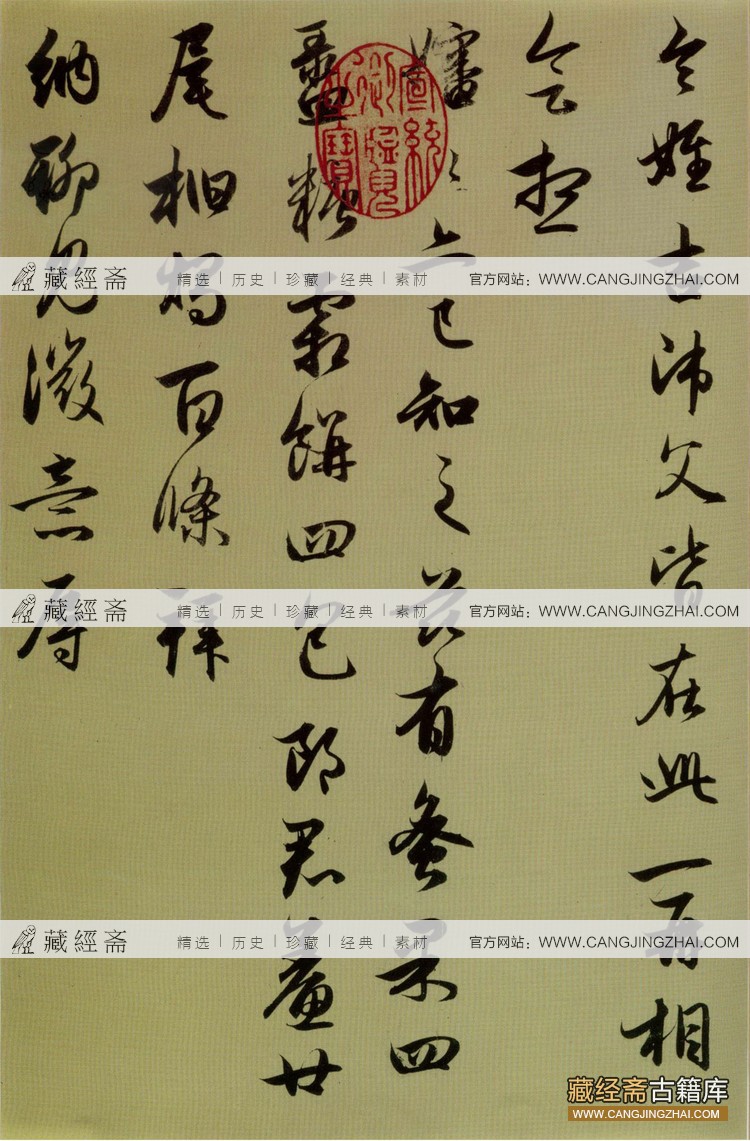 令姪吉沛父皆在此一再相
會想
嬸〻亦已知之茲有蜜果四
盝糖霜餅四包郎君鯗廿
尾柏燭百條拜
納聊見微意辱
宣統御覽之寶
藏經斋 精选 | 历史 | 珍藏 | 经典 | 素材 官方网站：WWW.CANGJINGZHAI.COM
藏經斋 精选 | 历史 | 珍藏 | 经典 | 素材 官方网站：WWW.CANGJINGZHAI.COM
藏經斋 精选 | 历史 | 珍藏 | 经典 | 素材 官方网站：WWW.CANGJINGZHAI.COM
藏经斋古籍库
WWW.CANGJINGZHAI.COM